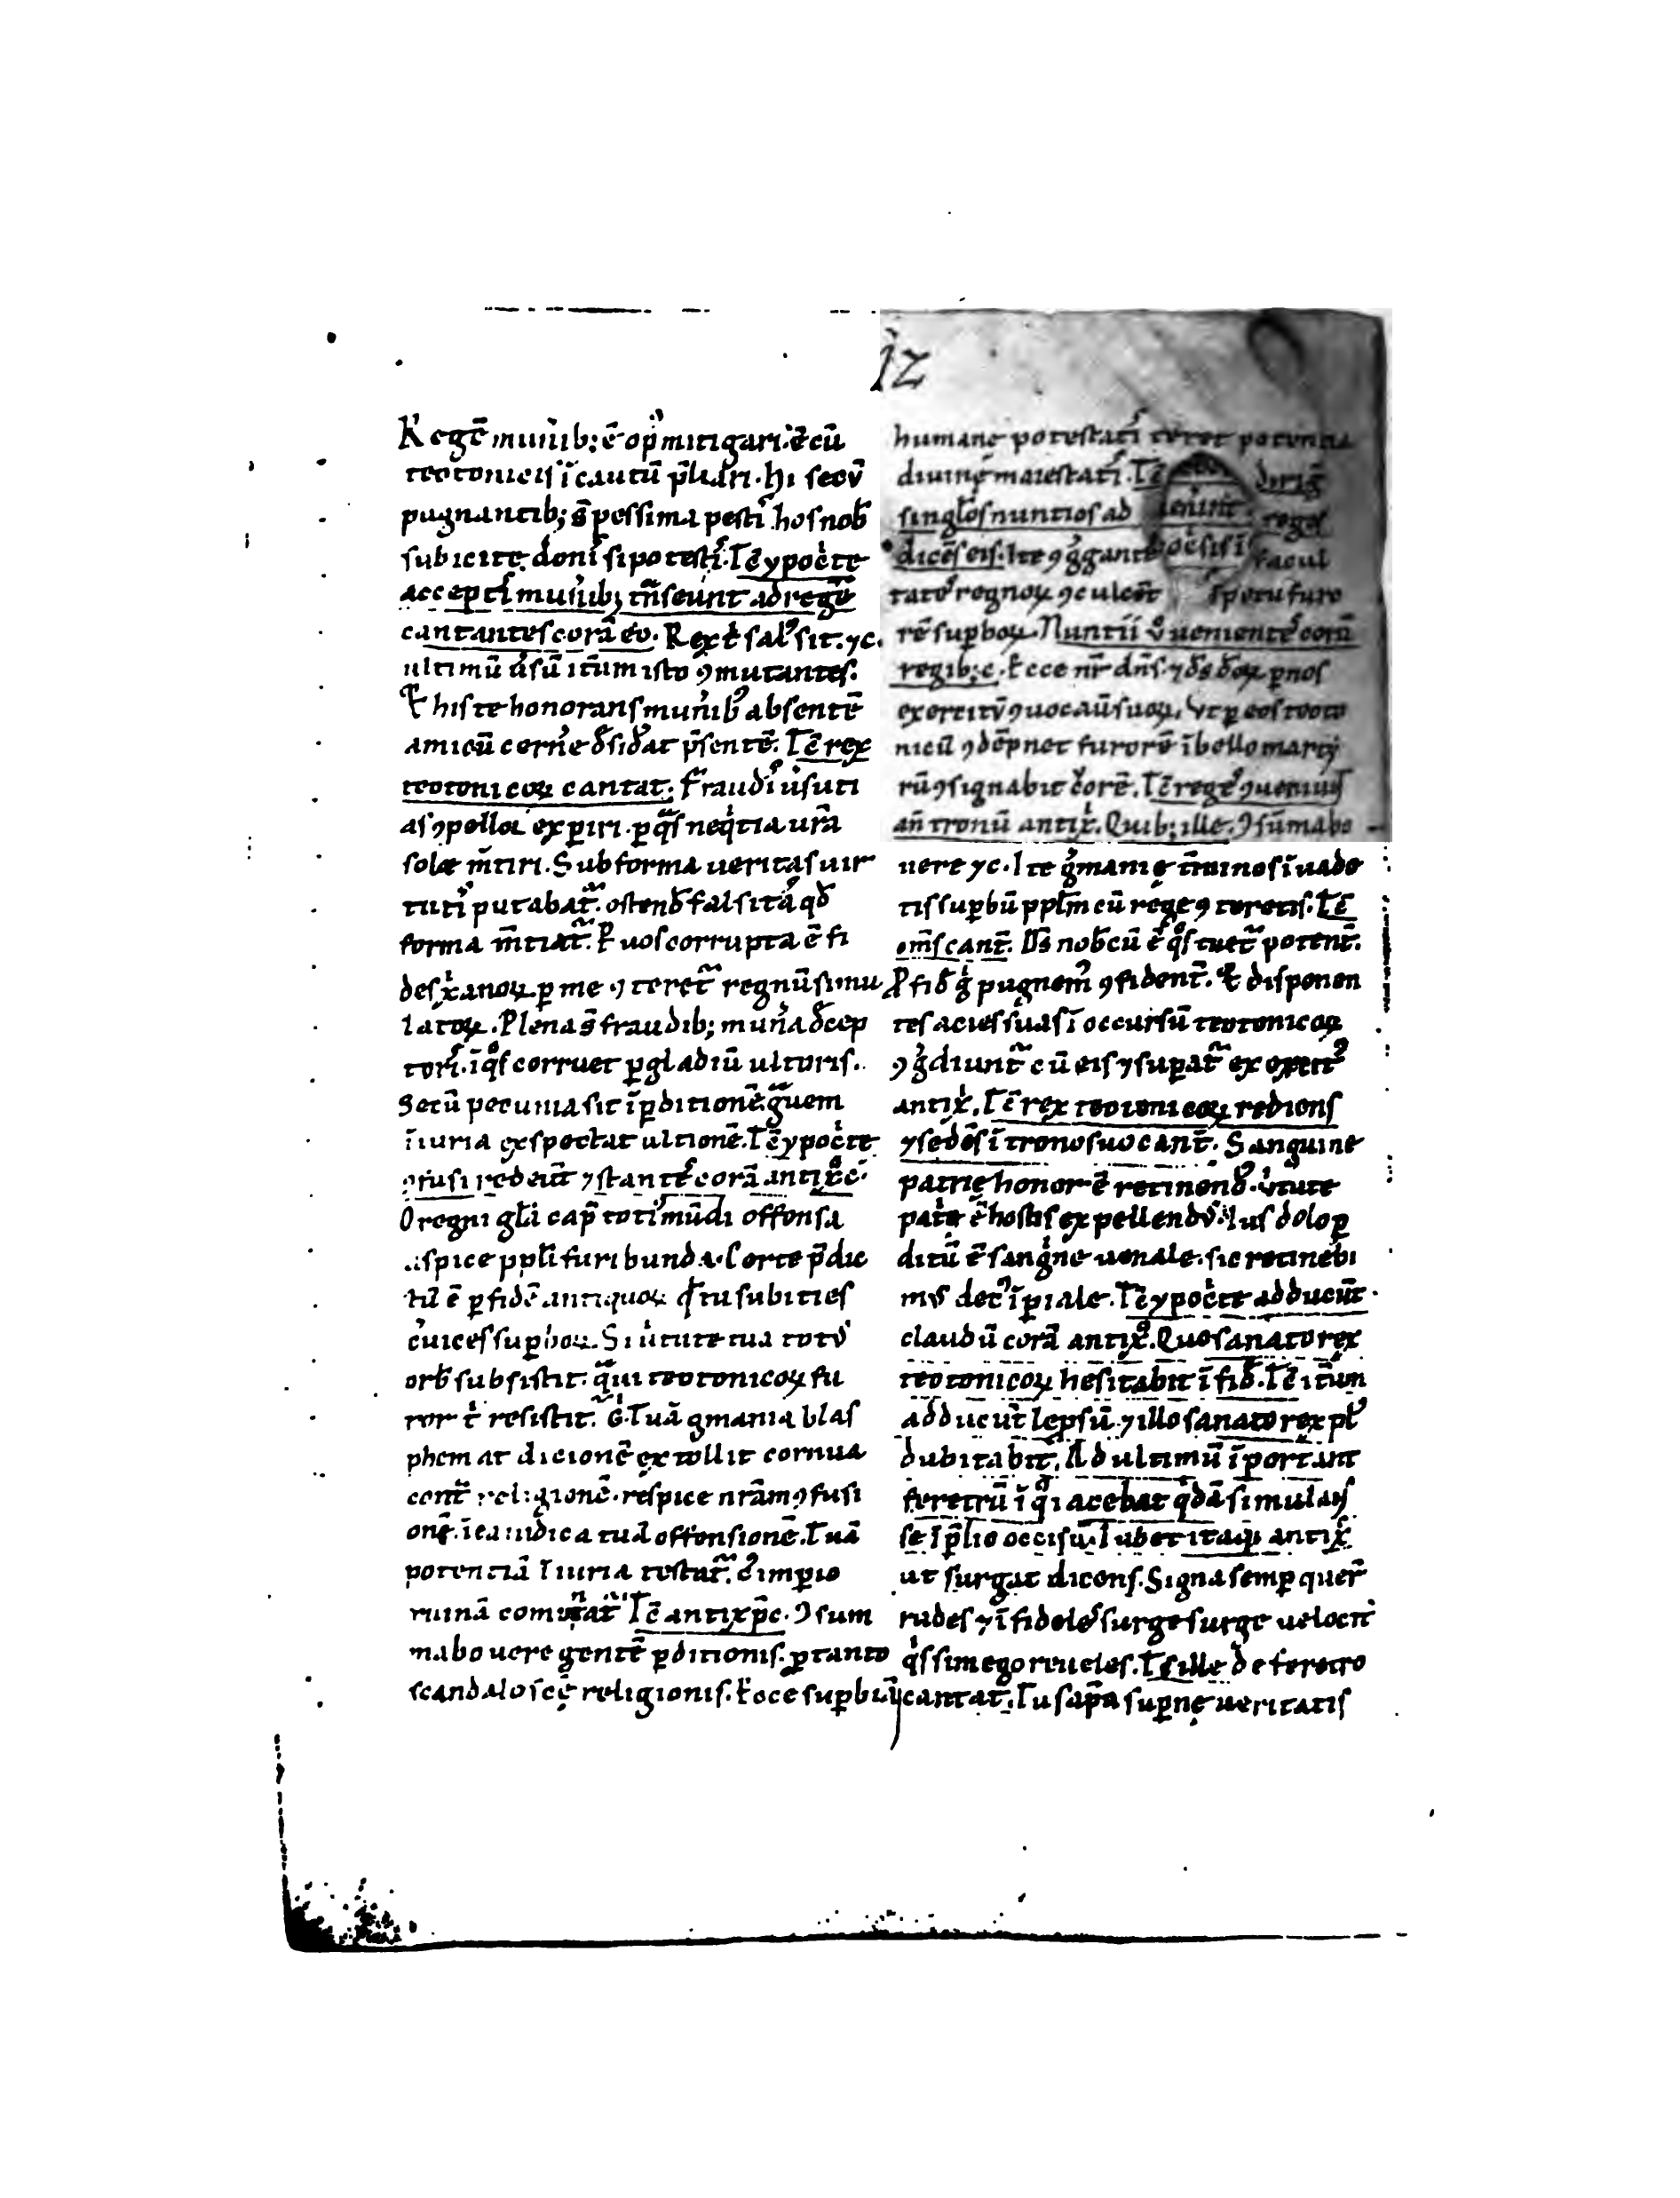 12
Regē munib; ē op̄ mitigari. ē cū
teotonicis ī cautū p̄liari. hi secū
pugnantib; s̄ pessima pestis. hos nob̄
subicite. donis si potestis. Tc̄ ypoc̄te
acceptis munib; tn̄seunt ad regē
cantantes corā eo. Rex t̄ salus sit. ⁊c.
ultimū ūsū itm̄ isto ꝯmutantes.
Et his te honorans munib; absentē
amicū cerne desid̄at p̄sentē. Tc̄ rex
teotonicoꝝ cantat. Fraudis ūsuti
as ꝯpellor experiri. ꝑ q̄s neq̄tia ur̄a
solet m̄tiri. Sub forma ueritas uir
tutis putabat̄. ostend̄ falsitas qd̄
forma m̄tiat̄. Ꝑ uos corrupta ē fi
des xianoꝝ. ꝑ me ꝯteret̄ regnū simu
latoꝝ. Plena s̄ fraudib; munera decep
toris. ī qs corruet ꝑ gladiū ultoris.
Secū pecunia sit ī ꝑditionē. ḡuem
iniuria exspectat ultionē. Tc̄ ypoc̄te
ꝯfusi redeūt ⁊ stantes corā antix̄o c̄.
O regni gl̄a cap̄ totius mūdi offensa
aspice ppl̄i furibunda. Certe p̄dic
tū ē ꝑ fidē antiquoꝝ qd̄ tu subities
ceruices suꝑboꝝ. Si uirtute tua totus
orb̄ subsistit. q̄ ui teotonicoꝝ fu
ror t̄ resistit. G̃. Tuā gmania blas
phemat dicionē extollit cornua
cont̄ religionē. respice nrām ꝯfusi
onē. ī ea iudica tuā offensionē. Tuā
potenciā iniuria testat̄. cuius imꝑio
ruinā comīat̄ Tc̄ antix̄p̄c. Ꝯsum
mabo uere gentē ꝑditionis. ꝑ tanto
scandalo sc̄ę religionis. Ecce suꝑbū
humanę potestatis teret potencia
diuinę maiestatis. Tc̄ dirig̃
singlos nuntios ad reges
dicēs eis. Ite ꝯgganter facul
tates regnoꝝ ꝯculcēt furo
rē suꝑboꝝ. Nuntii ū uenientes corā
regib; c. Ecce nr̄ dn̄s. ⁊ ds̄ d̄oꝝ ꝑ nos
exercitū ꝯuocauit suoꝝ. Ut ꝑ eos teoto
nicū ꝯdēpnet furorē ī bello martyrū
rū ꝯsignabit cruorē. Tc̄ reges ꝯueniūt
an̄ tronū antix̄. Quib; ille. Ꝯsūmabo
uere ⁊c. Ite ḡmanię t̄minos ī uade
tis suꝑbū ppl̄m cū rege ꝯteretis. Tc̄
oms̄ cant̄. Ds̄ nob̄cū ē qs tuet̄ potent̄.
Ꝑ fid̄ g̃ pugnem ꝯfident̄. Et disponen
tes acies suas ī occursū teotonicoꝝ
ꝯgdiunt̄ cū eis ⁊ suꝑat̄ exercitus
antix̄. Tc̄ rex teotonicoꝝ rediens
⁊ sedēs ī trono suo cant̄. Sanguine
patrię honor ē retinend⁹. uirtute
patrię ē hostis expellendus. Ius dolo ꝑ
ditū ē sangne uenale. sic retinebi
mus dec⁹ īꝑiale. Tc̄ ypoc̄te adducūt
claudū corā antix̄o. Quo sanato rex
teotonicoꝝ hesitabit ī fid̄. Tc̄ it̄um
adducūt lepsū ⁊ illo sanato rex pl⁹
dubitabit. Ad ultimū īportant
feretrū ī q̄ iacebat q̄dā simulans
se ī p̄lio occisū. Iubet itaꝗ antix̄
ut surgat dicens. Signa semꝑ quer̄
rudes ⁊ īfideles surge surge uelocit̄
qs sim ego reueles. Tc̄ ille de feretro
cantat. Tu sap̄a suꝑnę ueritatis